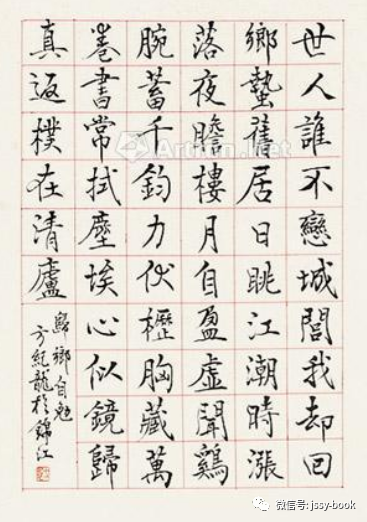 世人誰不戀城閭我却回
鄉蟄舊居日眺江潮時漲
落夜瞻樓月自盈虛聞鷄
腕蓄千鈞力伏櫪胸藏萬
卷書常拭塵埃心似鏡歸
真返樸在清廬
歸鄉自勉
方紀龍於錦江
Artron.Net
微信号: jssy-book